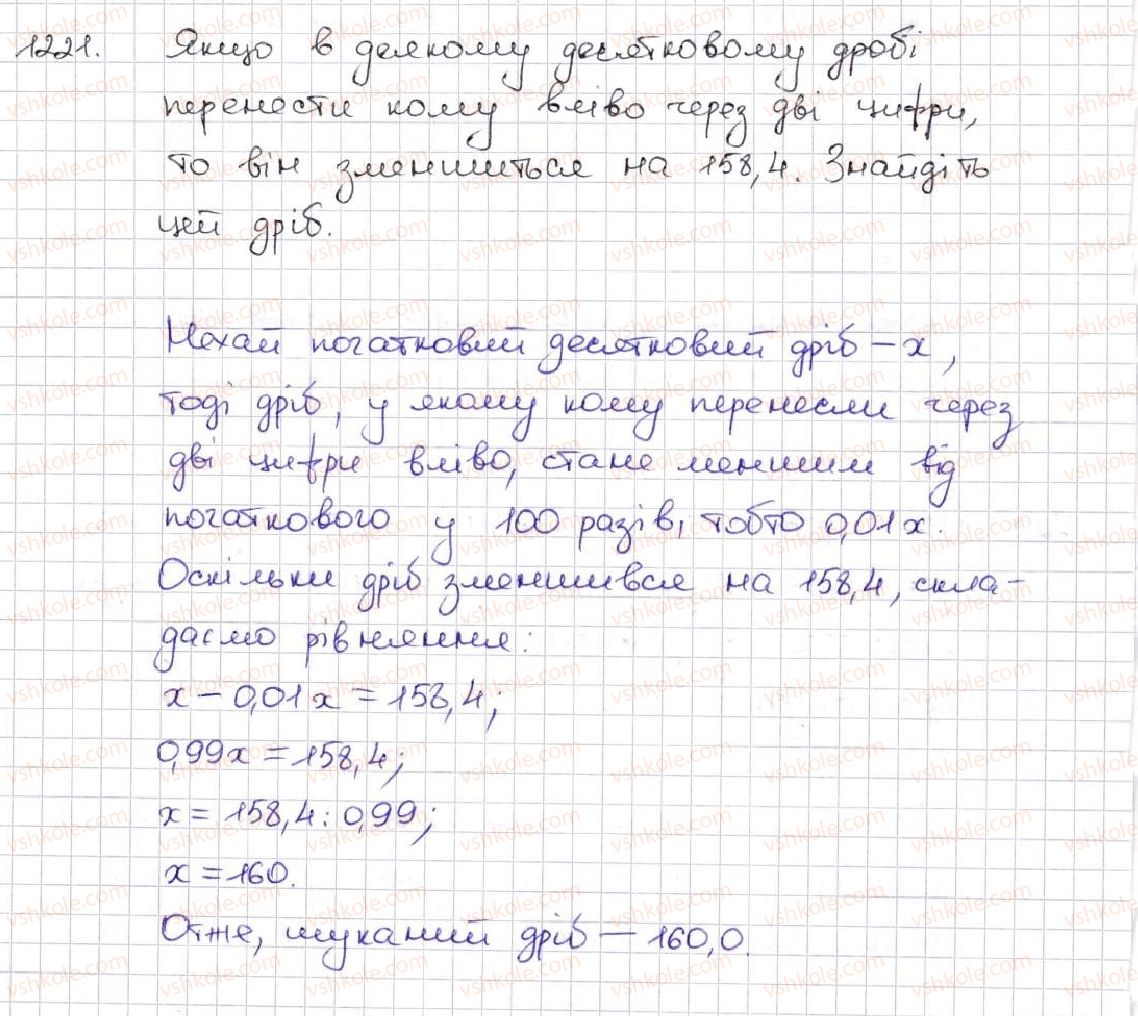 1221. Якщо в деякому десятковому дробі
перенести кому вліво через дві цифри,
то він зменшиться на 158,4. Знайдіть
цей дріб.
Нехай початковий десятковий дріб – x,
тоді дріб, у якому кому перенесли через
дві цифри вліво, стане меншим від
початкового у 100 разів, тобто 0,01x.
Оскільки дріб зменшився на 158,4, скла-
даємо рівняння:
x – 0,01x = 158,4;
0,99x = 158,4;
x = 158,4 : 0,99;
x = 160.
Отже, шуканий дріб – 160,0.
vshkole.com